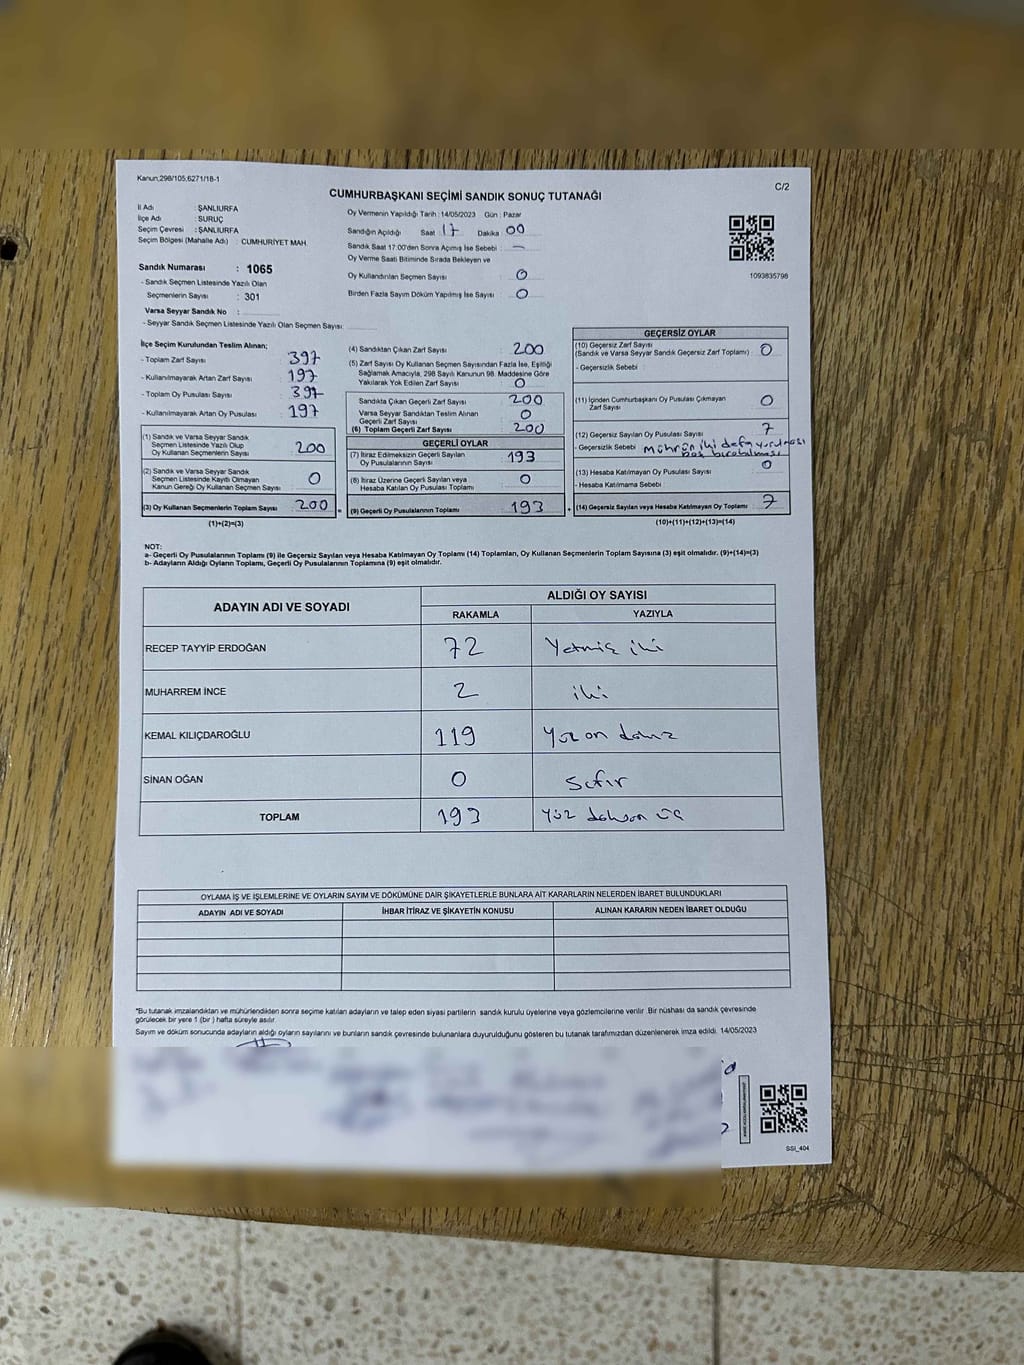 Kanun,298/105,6271/18-1
C/2
CUMHURBAŞKANI SEÇİMİ SANDIK SONUÇ TUTANAĞI
İl Adı : ŞANLIURFA
İlçe Adı : SURUÇ
Seçim Çevresi : ŞANLIURFA
Seçim Bölgesi (Mahalle Adı) : CUMHURİYET MAH.
Sandık Numarası : 1065
- Sandık Seçmen Listesinde Yazılı Olan
Seçmenlerin Sayısı : 301
Varsa Seyyar Sandık No :
- Seyyar Sandık Seçmen Listesinde Yazılı Olan Seçmen Sayısı:
Oy Vermenin Yapıldığı Tarih : 14/05/2023 Gün : Pazar
Sandığın Açıldığı Saat 17 Dakika 00
Sandık Saat 17:00'den Sonra Açımış İse Sebebi : —
Oy Verme Saati Bitiminde Sırada Bekleyen ve
Oy Kullandırılan Seçmen Sayısı : 0
Birden Fazla Sayım Döküm Yapılmış İse Sayısı : 0
1093835798
İlçe Seçim Kurulundan Teslim Alınan;
- Toplam Zarf Sayısı : 397
- Kullanılmayarak Artan Zarf Sayısı : 197
- Toplam Oy Pusulası Sayısı : 397
- Kullanılmayarak Artan Oy Pusulası : 197
(1) Sandık ve Varsa Seyyar Sandık
Seçmen Listesinde Yazılı Olup
Oy Kullanan Seçmenlerin Sayısı 200
(2) Sandık ve Varsa Seyyar Sandık
Seçmen Listesinde Kayıtlı Olmayan
Kanun Gereği Oy Kullanan Seçmen Sayısı 0
(3) Oy Kullanan Seçmenlerin Toplam Sayısı 200 =
(1)+(2)=(3)
(4) Sandıktan Çıkan Zarf Sayısı : 200
(5) Zarf Sayısı Oy Kullanan Seçmen Sayısından Fazla İse, Eşitliği
Sağlamak Amacıyla, 298 Sayılı Kanunun 98. Maddesine Göre
Yakılarak Yok Edilen Zarf Sayısı : 0
Sandıkta Çıkan Geçerli Zarf Sayısı : 200
Varsa Seyyar Sandıktan Teslim Alınan
Geçerli Zarf Sayısı : 0
(6) Toplam Geçerli Zarf Sayısı : 200
GEÇERLİ OYLAR
(7) İtiraz Edilmeksizin Geçerli Sayılan
Oy Pusulalarının Sayısı 193
(8) İtiraz Üzerine Geçerli Sayılan veya
Hesaba Katılan Oy Pusulası Toplamı 0
(9) Geçerli Oy Pusulalarının Toplamı 193 +
GEÇERSİZ OYLAR
(10) Geçersiz Zarf Sayısı
(Sandık ve Varsa Seyyar Sandık Geçersiz Zarf Toplamı) : 0
- Geçersizlik Sebebi :
(11) İçinden Cumhurbaşkanı Oy Pusulası Çıkmayan
Zarf Sayısı : 0
(12) Geçersiz Sayılan Oy Pusulası Sayısı : 7
- Geçersizlik Sebebi mührün iki defa vurulması
boş bırakılması
(13) Hesaba Katılmayan Oy Pusulası Sayısı : 0
- Hesaba Katılmama Sebebi :
(14) Geçersiz Sayılan veya Hesaba Katılmayan Oy Toplamı : 7
(10)+(11)+(12)+(13)=(14)
NOT:
a- Geçerli Oy Pusulalarının Toplamı (9) ile Geçersiz Sayılan veya Hesaba Katılmayan Oy Toplamı (14) Toplamları, Oy Kullanan Seçmenlerin Toplam Sayısına (3) eşit olmalıdır. (9)+(14)=(3)
b- Adayların Aldığı Oyların Toplamı, Geçerli Oy Pusulalarının Toplamına (9) eşit olmalıdır.
ADAYIN ADI VE SOYADI
ALDIĞI OY SAYISI
RAKAMLA YAZIYLA
RECEP TAYYİP ERDOĞAN 72 Yetmiş iki
MUHARREM İNCE 2 iki
KEMAL KILIÇDAROĞLU 119 Yüz on dokuz
SİNAN OĞAN 0 Sıfır
TOPLAM 193 Yüz doksan üç
OYLAMA İŞ VE İŞLEMLERİNE VE OYLARIN SAYIM VE DÖKÜMÜNE DAİR ŞİKAYETLERLE BUNLARA AİT KARARLARIN NELERDEN İBARET BULUNDUKLARI
ADAYIN ADI VE SOYADI İHBAR İTİRAZ VE ŞİKAYETİN KONUSU ALINAN KARARIN NEDEN İBARET OLDUĞU
*Bu tutanak imzalandıktan ve mühürlendikten sonra seçime katılan adayların ve talep eden siyasi partilerin sandık kurulu üyelerine veya gözlemcilerine verilir. Bir nüshası da sandık çevresinde
görülecek bir yere 1 (bir ) hafta süreyle asılır.
Sayım ve döküm sonucunda adayların aldığı oyların sayılarını ve bunların sandık çevresinde bulunanlara duyurulduğunu gösteren bu tutanak tarafımızdan düzenlenerek imza edildi. 14/05/2023
SSI_404